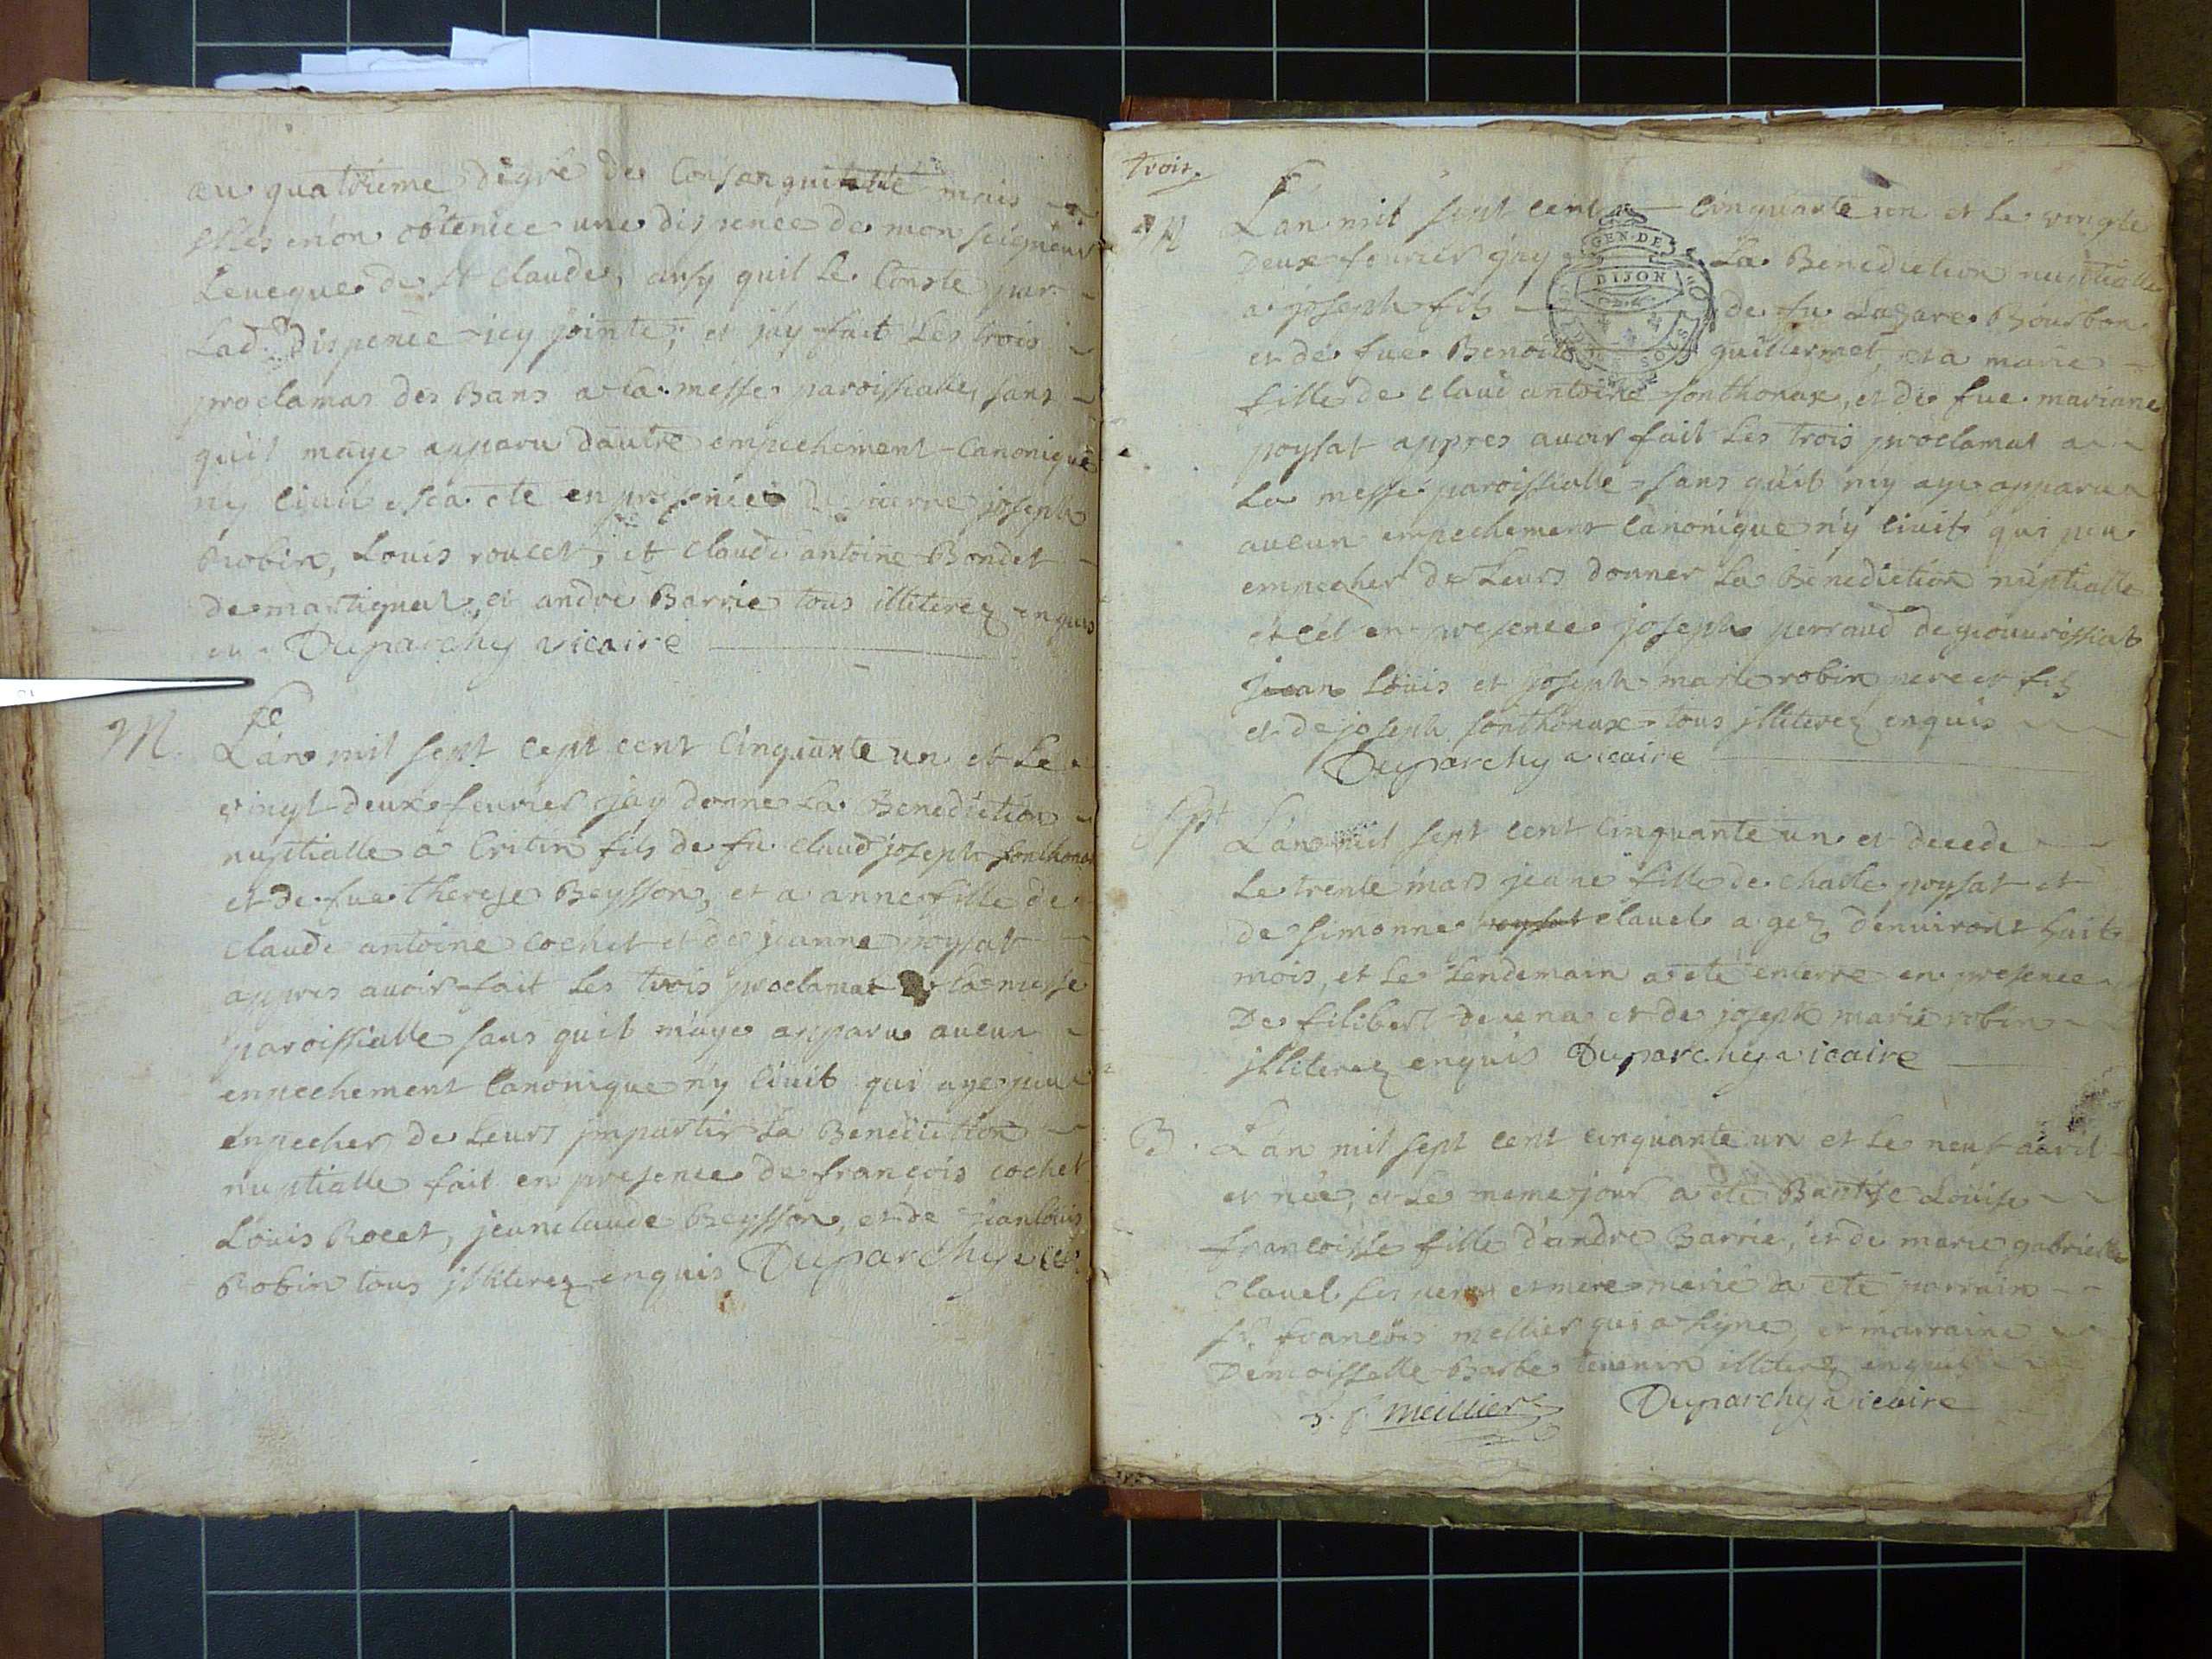 au quatrieme degré de Consanguinité mais
elles en on obtenïee une dispence de mon seigneur
Leveque de st Claude, ansy quil Le Conste par
Lad. dispence icy jointe; et j'ay fait Les trois
proclamas des Bans a la messe paroissialle, sans
quil maye apparu dautre empechement Canonique
ny Civil en presence de pierre joseph
Robin, Louis roucet, et Claude antoine Bondet
de martignat, et andre Barrie tous illiterez enquis
Duparchy vicaire
M.
L'an mil sept cept cent Cinquante un et Le
vingt deux fevrier jay donne La Benediction
nuptialle a Critin fils de fu Claud joseph fonthonax
et de fue therese Beysson, et a anne fille de
Claude antoine cochet et de jeanne poysat
appres avoir fait Les trois proclamat a la messe
paroissialle sans quil m'aye apparu aucun
enpechement Canonique n'y Civil qui aye pu
enpecher de Leurs jmpartir La Benediction
nuptialle fait en presence de françois cochet
Louis Rocet, jeanclaude Beysson, et de jeanlouis
Robin tous jlliterez enquis Duparchy vic
trois.
M
L'an mil sept cent Cinquante un et Le vingte
Deux fevrier j'ay La Benediction nuptialle
a joseph fils de fu Lazare Bourbon
et de fue Benoite guillermet, et a marie
fille de Claud antoine fonthonax, et de fue mariane
poysat appres avoir fait Les trois proclamat a
La messe paroissialle sans qu'il m'y aye apparu
aucun empechement Canonique n'y Civil qui peu
empecher de Leurs donner La Benediction nuptialle
et cel en presence joseph perraud de geouvrissiat
jean Louis et joseph marie robin pere et fils
et de joseph fonthonax tous jlliterez enquis
Duparchy vicaire
Spt
L'an mil sept cent Cinquante un et decede
Le trente mars jeane fille de Chasle poysat et
de simonne poysat Clavel a gez d'environt huit
mois, et Le Lendemain a eté enterre en presence
De filibert devena et de joseph marie robin
jlliterez enquis Duparchy vicaire
B.
L'an mil sept cent cinquante un et Le neuf avril
et née, et Le meme jour a eté Baptise Louise
francoisse fille d'andre Barrie, et de marie gabrielle
Clavel ses pere et mere marié a ete parrain
sr. françois mellier qui a signe, et marraine
Demoisselle Barbe tevenin illiterez enquis
f. f. meillier Duparchy vicaire
GEN. DE
DIJON